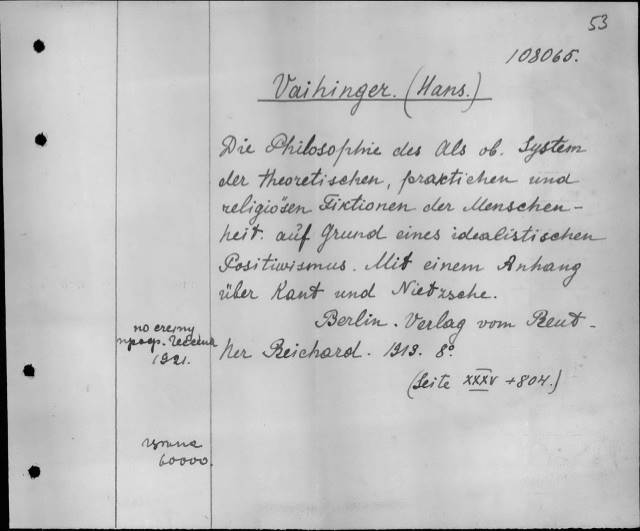 53
108065.
Vaihinger. (Hans.)
Die Philosophie des Als ob. System
der theoretischen, praktichen und
religiösen Fiktionen der Menschen-
heit. auf Grund eines idealistischen
Positiwismus. Mit einem Anhang
über Kant und Nietzsche.
Berlin. Verlag vom Reut-
her Reichard. 1913. 8°
(Seite XXXV + 804.)
1921.
60000.